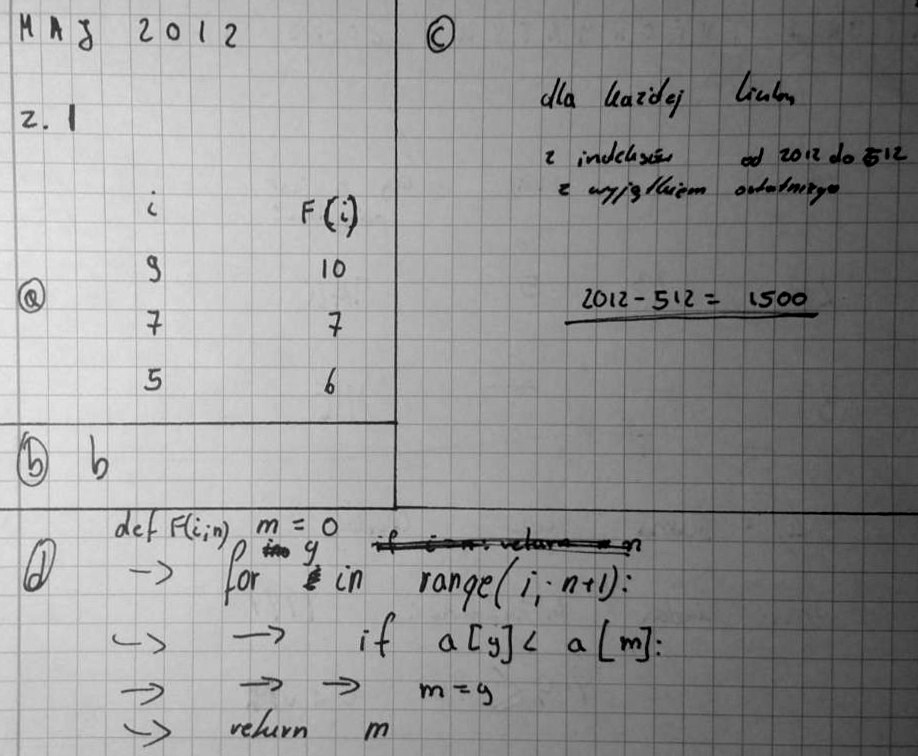 MAJ 2012
z. 1
i F(i)
ⓐ
9 10
7 7
5 6
ⓑ b
ⓒ
dla każdej liczby
z indeksów od 2012 do 512
z wyjątkiem ostatniego
2012 - 512 = 1500
ⓓ
def F(i,n) m = 0
→ for y in range(i, n+1):
→ → if a[y] < a[m]:
→ → → m = y
→ return m